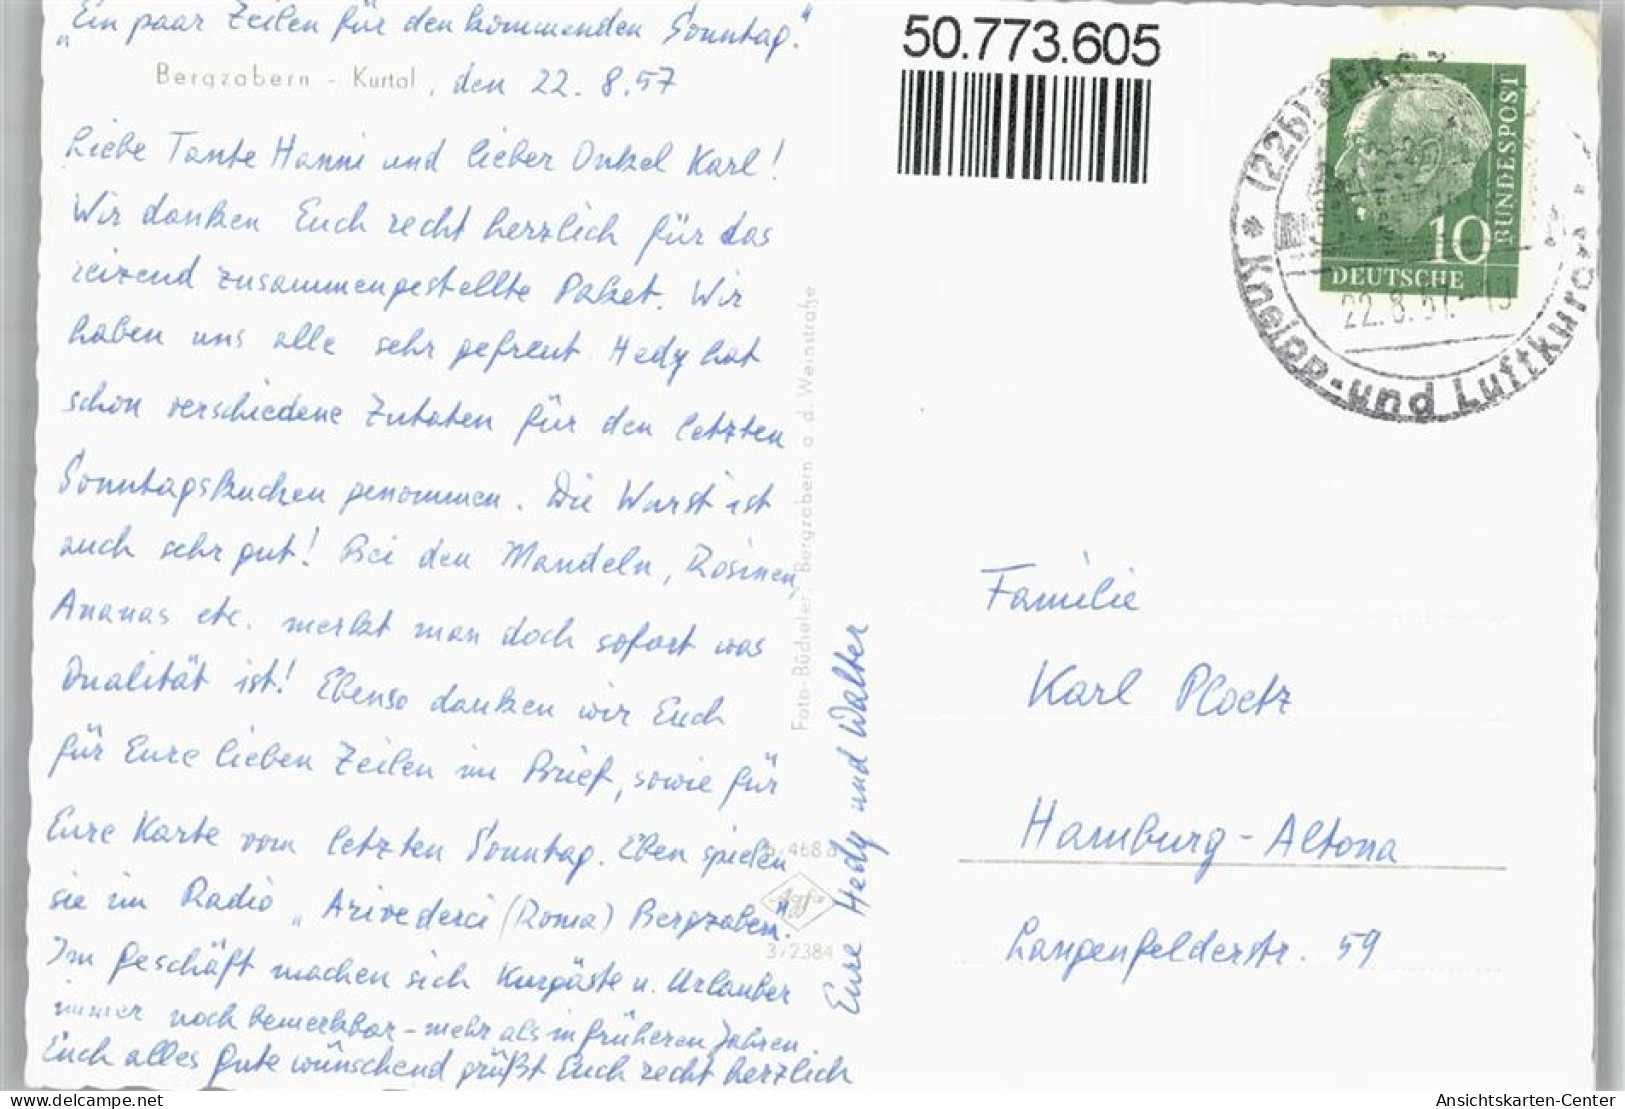 „Ein paar Zeilen für den kommenden Sonntag."
Bergzabern - Kurtal, den 22. 8. 57
Liebe Tante Hanni und lieber Onkel Karl!
Wir danken Euch recht herzlich für das
reizend zusammengestellte Paket. Wir
haben uns alle sehr gefreut. Hedy hat
schon verschiedene Zutaten für den letzten
Sonntagskuchen genommen. Die Wurst ist
auch sehr gut! Bei den Mandeln, Rosinen,
Ananas etc. merkt man doch sofort was
Qualität ist! Ebenso danken wir Euch
für Eure lieben Zeilen im Brief, sowie für
Eure Karte vom letzten Sonntag. Eben spielen
sie im Radio „Arivederci (Roma) Bergzabern".
Im Geschäft machen sich Kurgäste u. Urlauber
immer noch bemerkbar - mehr als in früheren Jahren.
Euch alles Gute wünschend grüßt Euch recht herzlich
Eure Hedy und Walter
Foto-Bücheler, Bergzabern a. d. Weinstraße
468
Agfa
3/2384
50.773.605
(22b) BERGZ
22.8.57.-19
* Kneipp- und Luftkurort
DEUTSCHE
BUNDESPOST
10
Familie
Karl Ploetz
Hamburg-Altona
Langenfelderstr. 59
www.delcampe.net
Ansichtskarten-Center